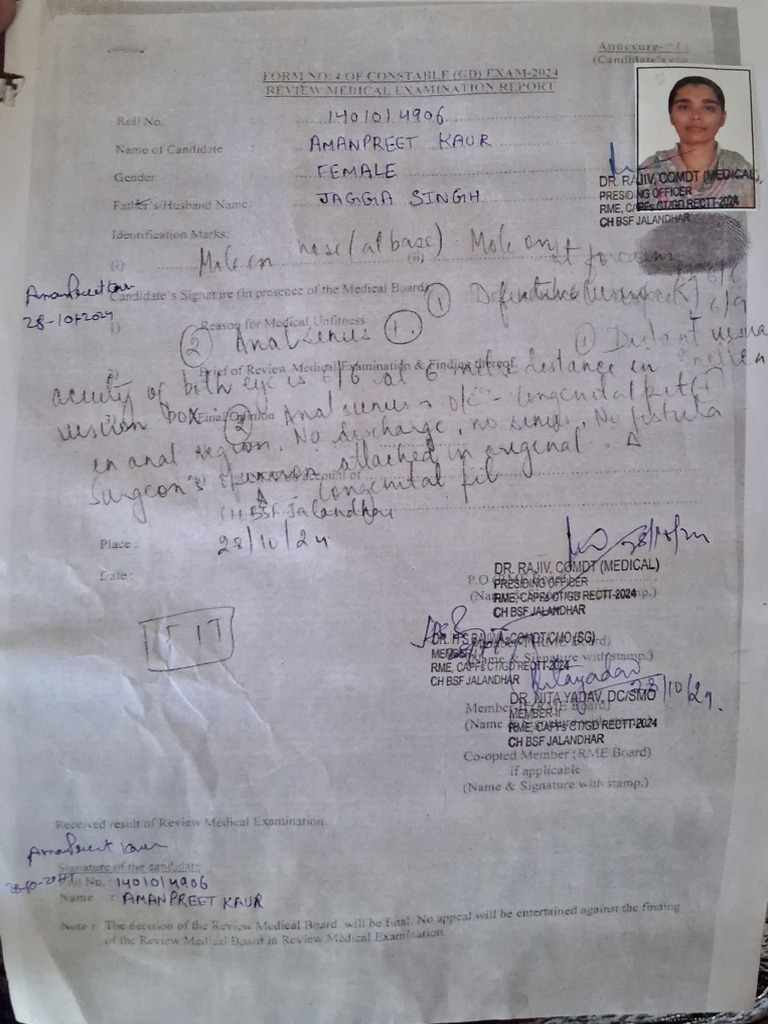 Annexure-
(Candidate's
FORM NO. 4 OF CONSTABLE (GD) EXAM-2024
REVIEW MEDICAL EXAMINATION REPORT
Roll No. 1401014906
Name of Candidate : AMANPREET KAUR
Gender : FEMALE
Father's/Husband Name: JAGGIA SINGH
DR. RAJIV, COMDT (MEDICAL)
PRESIDING OFFICER
RME, CAPFs CT/GD RECTT-2024
CH BSF JALANDHAR
Identification Marks:
(i) Mole on nose (at base) (ii) Mole on forearm
Amanpreet Kaur
28-10-2024
Candidate's Signature (in presence of the Medical Board)
① Defective 6/6 6/9
Reason for Medical Unfitness
② Anal sinus
① Distant visual
Brief of Review Medical Examination & Finding thereof
acuity of both eye is 6/6 at 6 metre distance in
vision box. ② Anal sinus → o/e - Congenital pit
Final Opinion
in anal region. No discharge, no sinus, No fistula
Surgeon's opinion attached in original. Δ
on account of
Δ Congenital pit
CH BSF Jalandhar
Place :
28/10/24
Date :
28/10/24
DR. RAJIV, COMDT (MEDICAL)
PRESIDING OFFICER
RME, CAPFs CT/GD RECTT-2024
CH BSF JALANDHAR
FIT
DR. H S BAJWA, COMDT/CMO (SG)
MEMBER
(Name & Signature with stamp.)
RME, CAPFs CT/GD RECTT-2024
CH BSF JALANDHAR
Nita yadav
28/10/24.
DR. NITA YADAV, DC/SMO
MEMBER-II
RME, CAPFs CT/GD RECTT-2024
CH BSF JALANDHAR
Co-opted Member (RME Board)
if applicable
(Name & Signature with stamp.)
Received result of Review Medical Examination
Amanpreet Kaur
Signature of the candidate
Roll No. : 1401014906
Name : AMANPREET KAUR
Note : The decision of the Review Medical Board will be final. No appeal will be entertained against the finding
of the Review Medical Board in Review Medical Examination